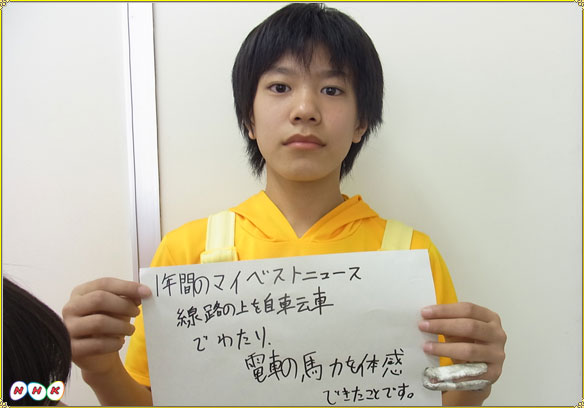 1年間のマイベストニュース
線路の上を自転車
でわたり、
電車の馬力を体感
できたことです。
NHK